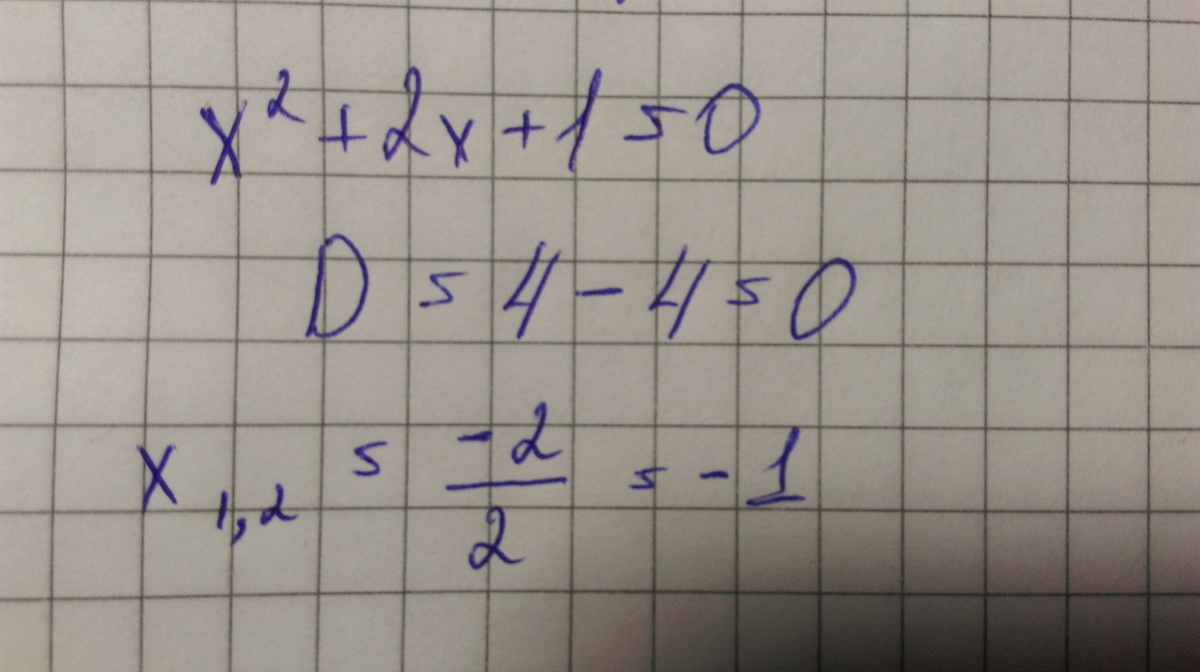 x² + 2x + 1 = 0
D = 4 - 4 = 0
x₁,₂ = -2/2 = -1